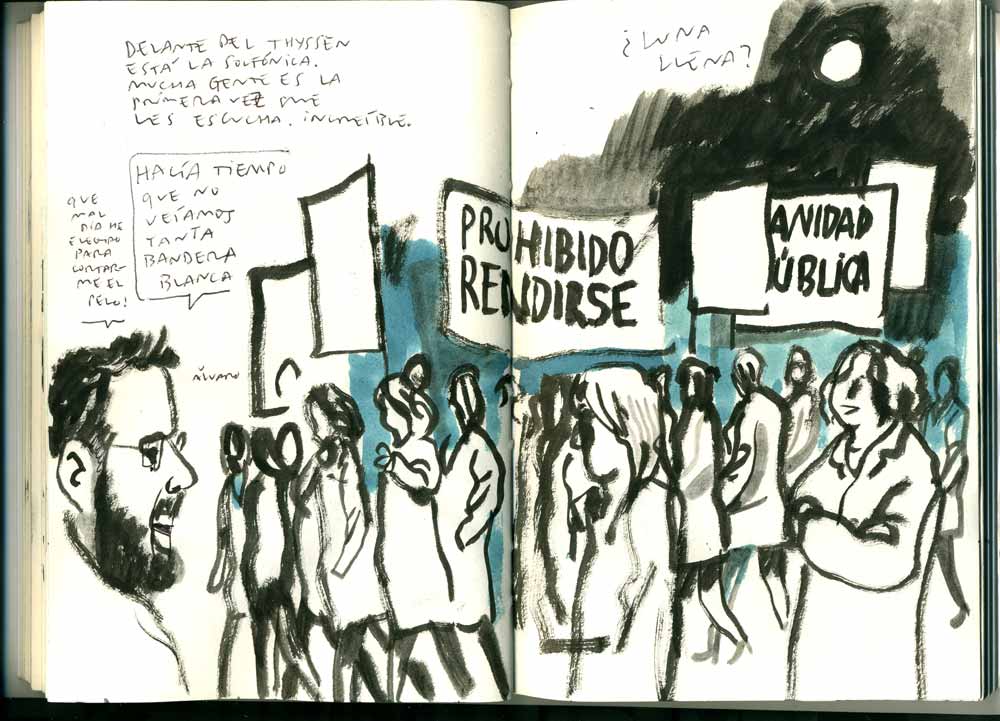 DELANTE DEL THYSSEN
ESTÁ LA SOLFÓNICA.
MUCHA GENTE ES LA
PRIMERA VEZ QUE
LES ESCUCHA. INCREÍBLE.
¿LUNA
LLENA?
HACÍA TIEMPO
QUE NO
VEÍAMOS
TANTA
BANDERA
BLANCA
QUE
MAL
DÍA HE
ELEGIDO
PARA
CORTAR-
ME EL
PELO!
ÁLVARO
PROHIBIDO
RENDIRSE
ANIDAD
ÚBLICA